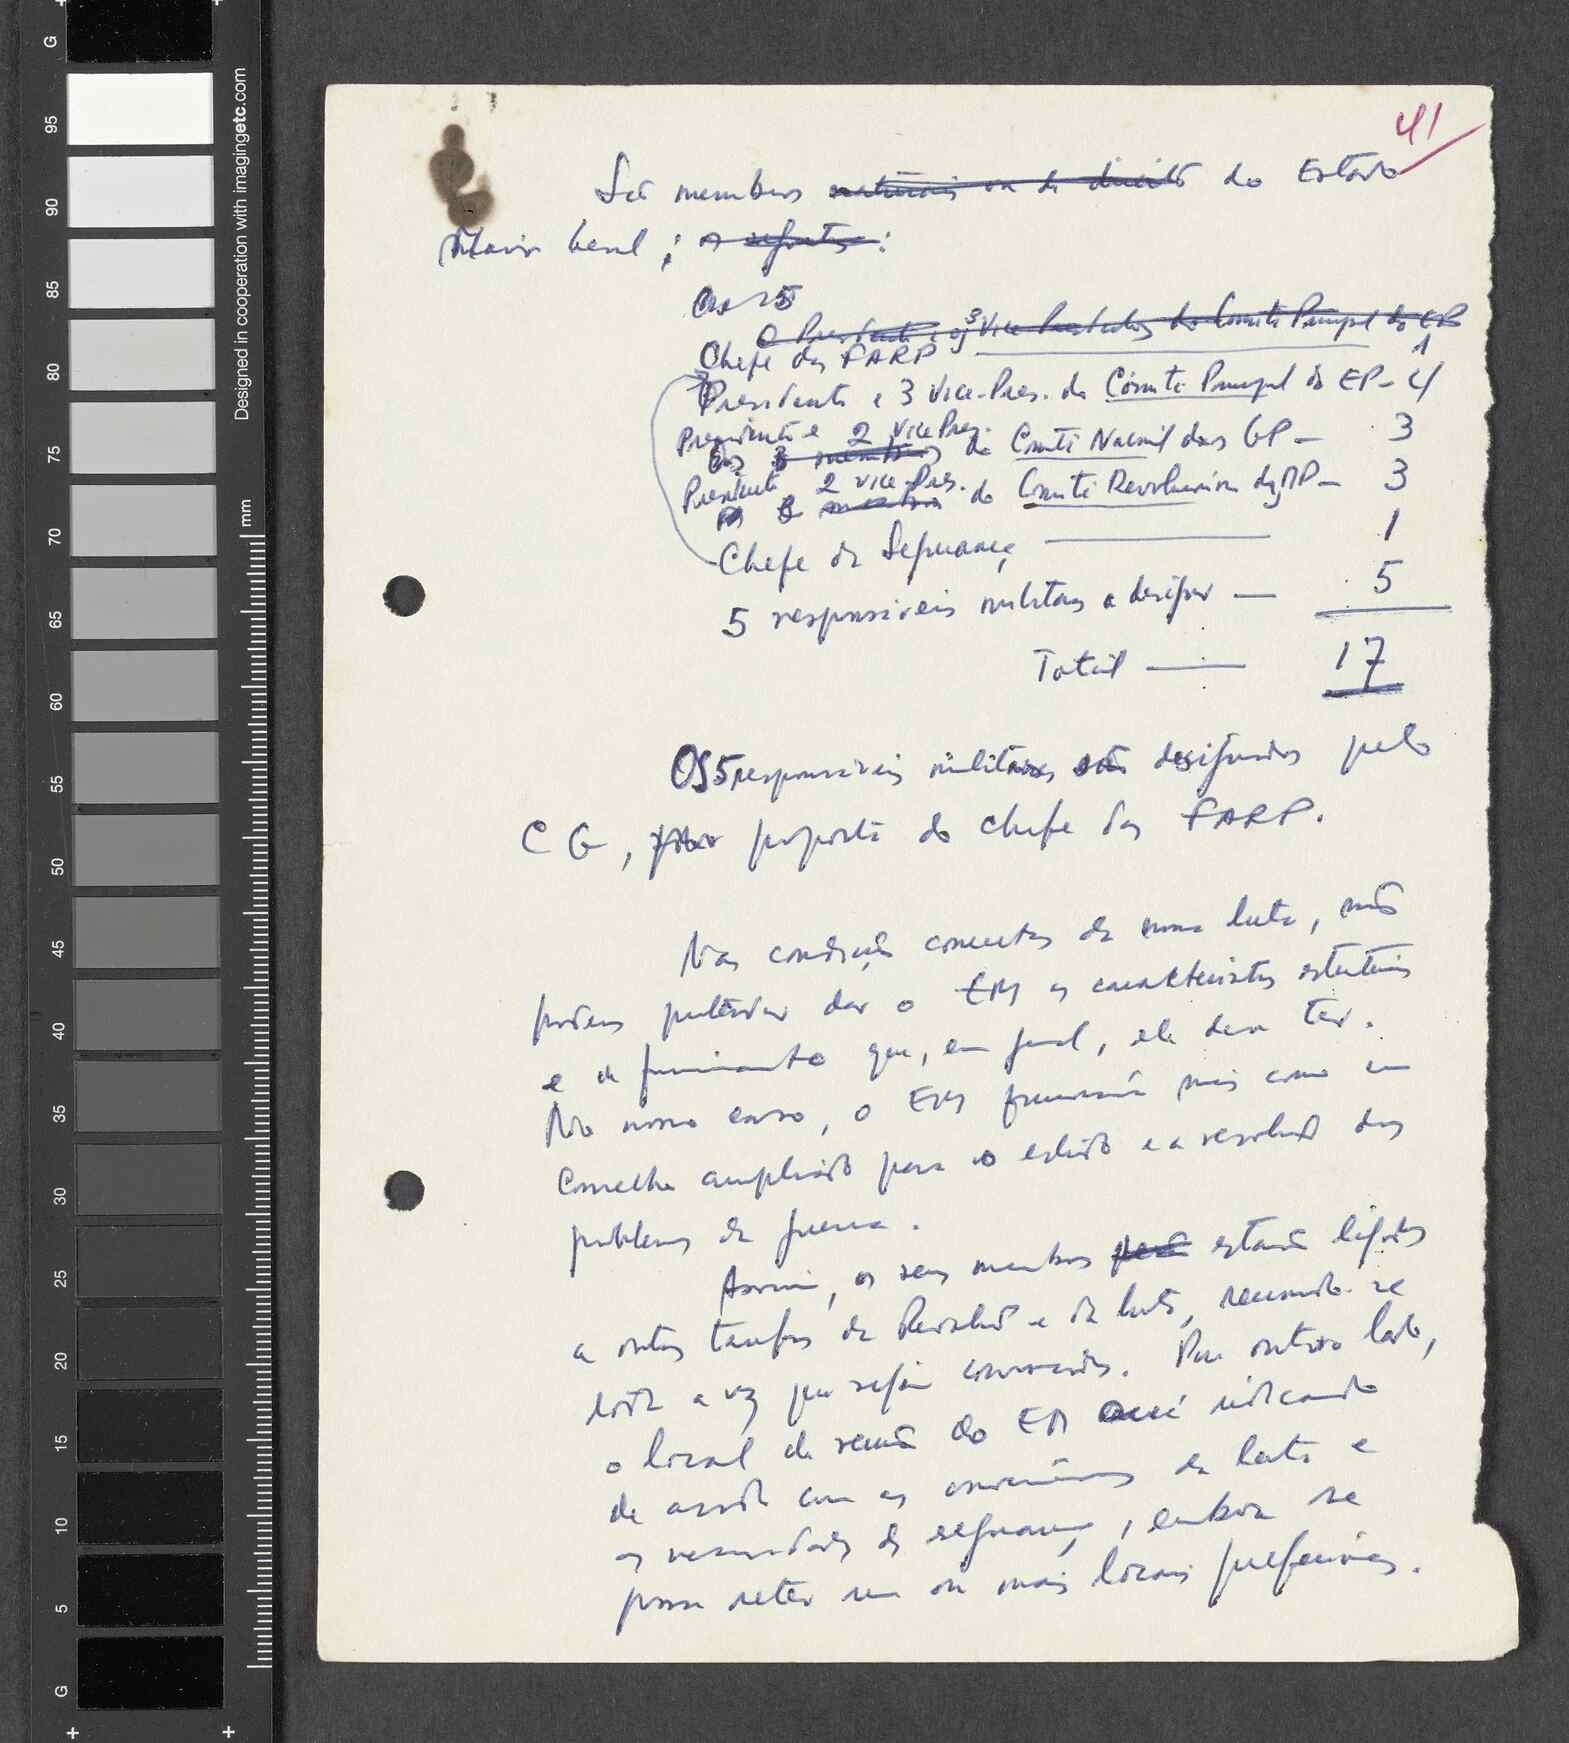 G
95
90
85
80
75
70
65
60
55
50
45
40
35
30
25
20
15
10
5
G
Designed in cooperation with imagingetc.com
mm
41
São membros naturais ou de direito do Estado
Maior Geral ; os seguintes :
O Presidente e os 3 Vice Presidentes do Comité Principal do EP
Chefe das FARP 1
Presidente e 3 Vice-Pres. do Comité Principal do EP - 4
Presidente e 2 Vice Pres.
Os 3 membros do Comité Nacional das GP - 3
Presidente 2 vice-Pres.
os 3 membros do Comité Revolucionário das MP - 3
Chefe da Segurança — 1
5 responsáveis militares a designar — 5
Total — 17
Os 5 responsáveis militares são designados pelo
CG, proposta do chefe das FARP.
Nas condições concretas da nossa luta, não
podemos pretender dar ao EM as características estruturais
e de funcionamento que, em geral, ele deve ter.
No nosso caso, o EM funcionará mais como um
Conselho ampliado para o estudo e a resolução dos
problemas da guerra.
Assim, os seus membros estarão ligados
a outras tarefas da Revolução e da luta, reunindo-se
toda a vez que sejam convocados. Por outro lado,
o local de reunião do EM será indicado
de acordo com as conveniências da luta e
as necessidades de segurança, embora se
possa reter um ou mais locais preferíveis.